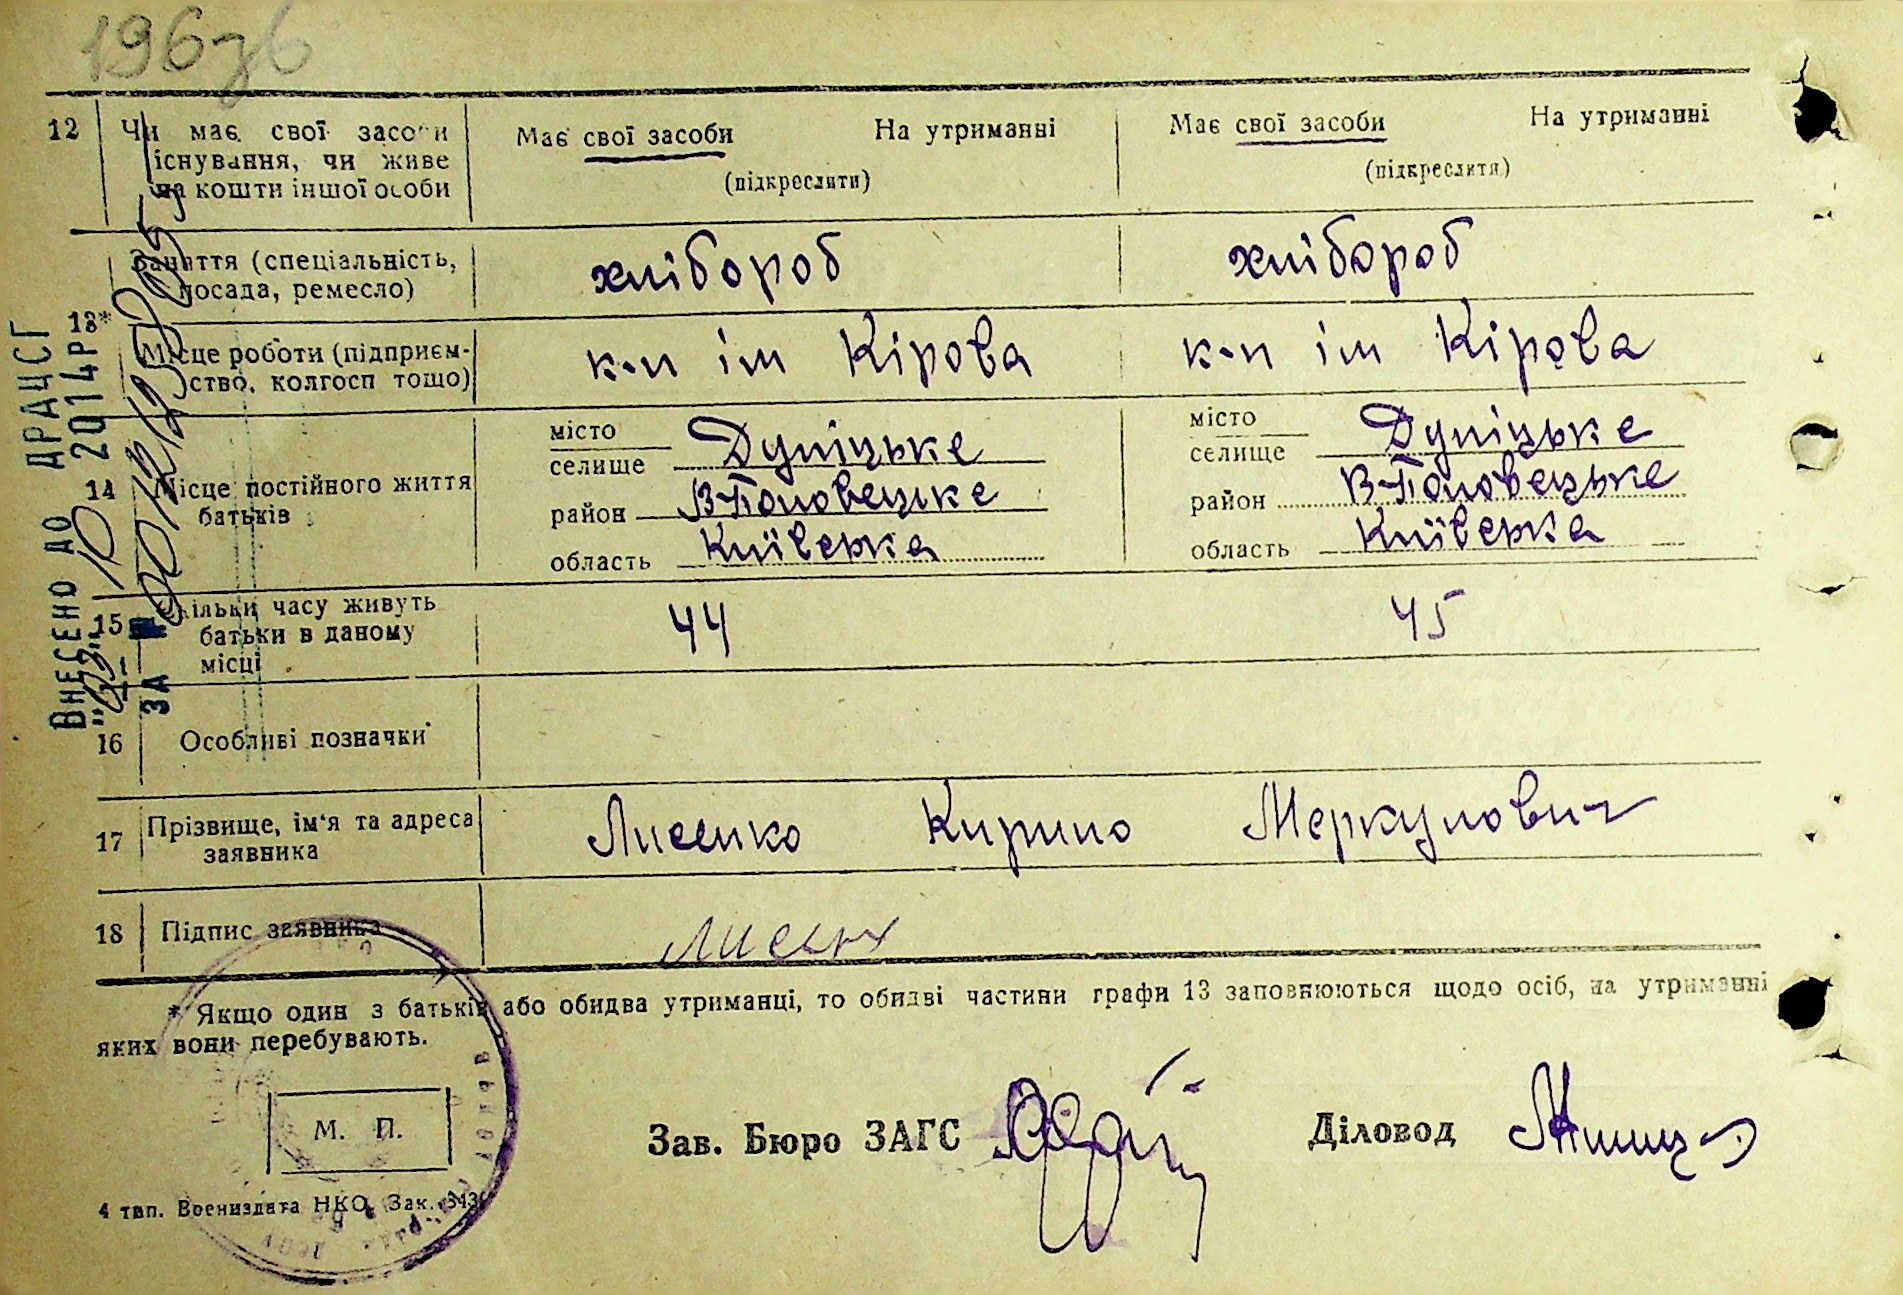 196зв
12 Чи має свої засоби Має свої засоби На утриманні Має свої засоби На утриманні
існування, чи живе
на кошти іншої особи (підкреслити) (підкреслити)
Заняття (спеціальність, хлібороб хлібороб
посада, ремесло)
13*
Місце роботи (підприєм- к-п ім Кірова к-п ім Кірова
ство, колгосп тощо)
місто місто
селище Дуліцьке селище Дуліцьке
14 Місце постійного життя
батьків район В-Половецьке район В-Половецьке
область Київська область Київська
15 Скільки часу живуть 44 45
батьки в даному
місці
16 Особливі позначки
17 Прізвище, ім'я та адреса Лисенко Кирило Меркулович
заявника
18 Підпис заявника Лисен
* Якщо один з батьків або обидва утриманці, то обидві частини графи 13 заповнюються щодо осіб, на утриманні
яких вони перебувають.
М. П.
Зав. Бюро ЗАГС Діловод
4 тип. Воениздата НКО. Зак.
Внесено до ДРАЦСГ
10 2014р
за №